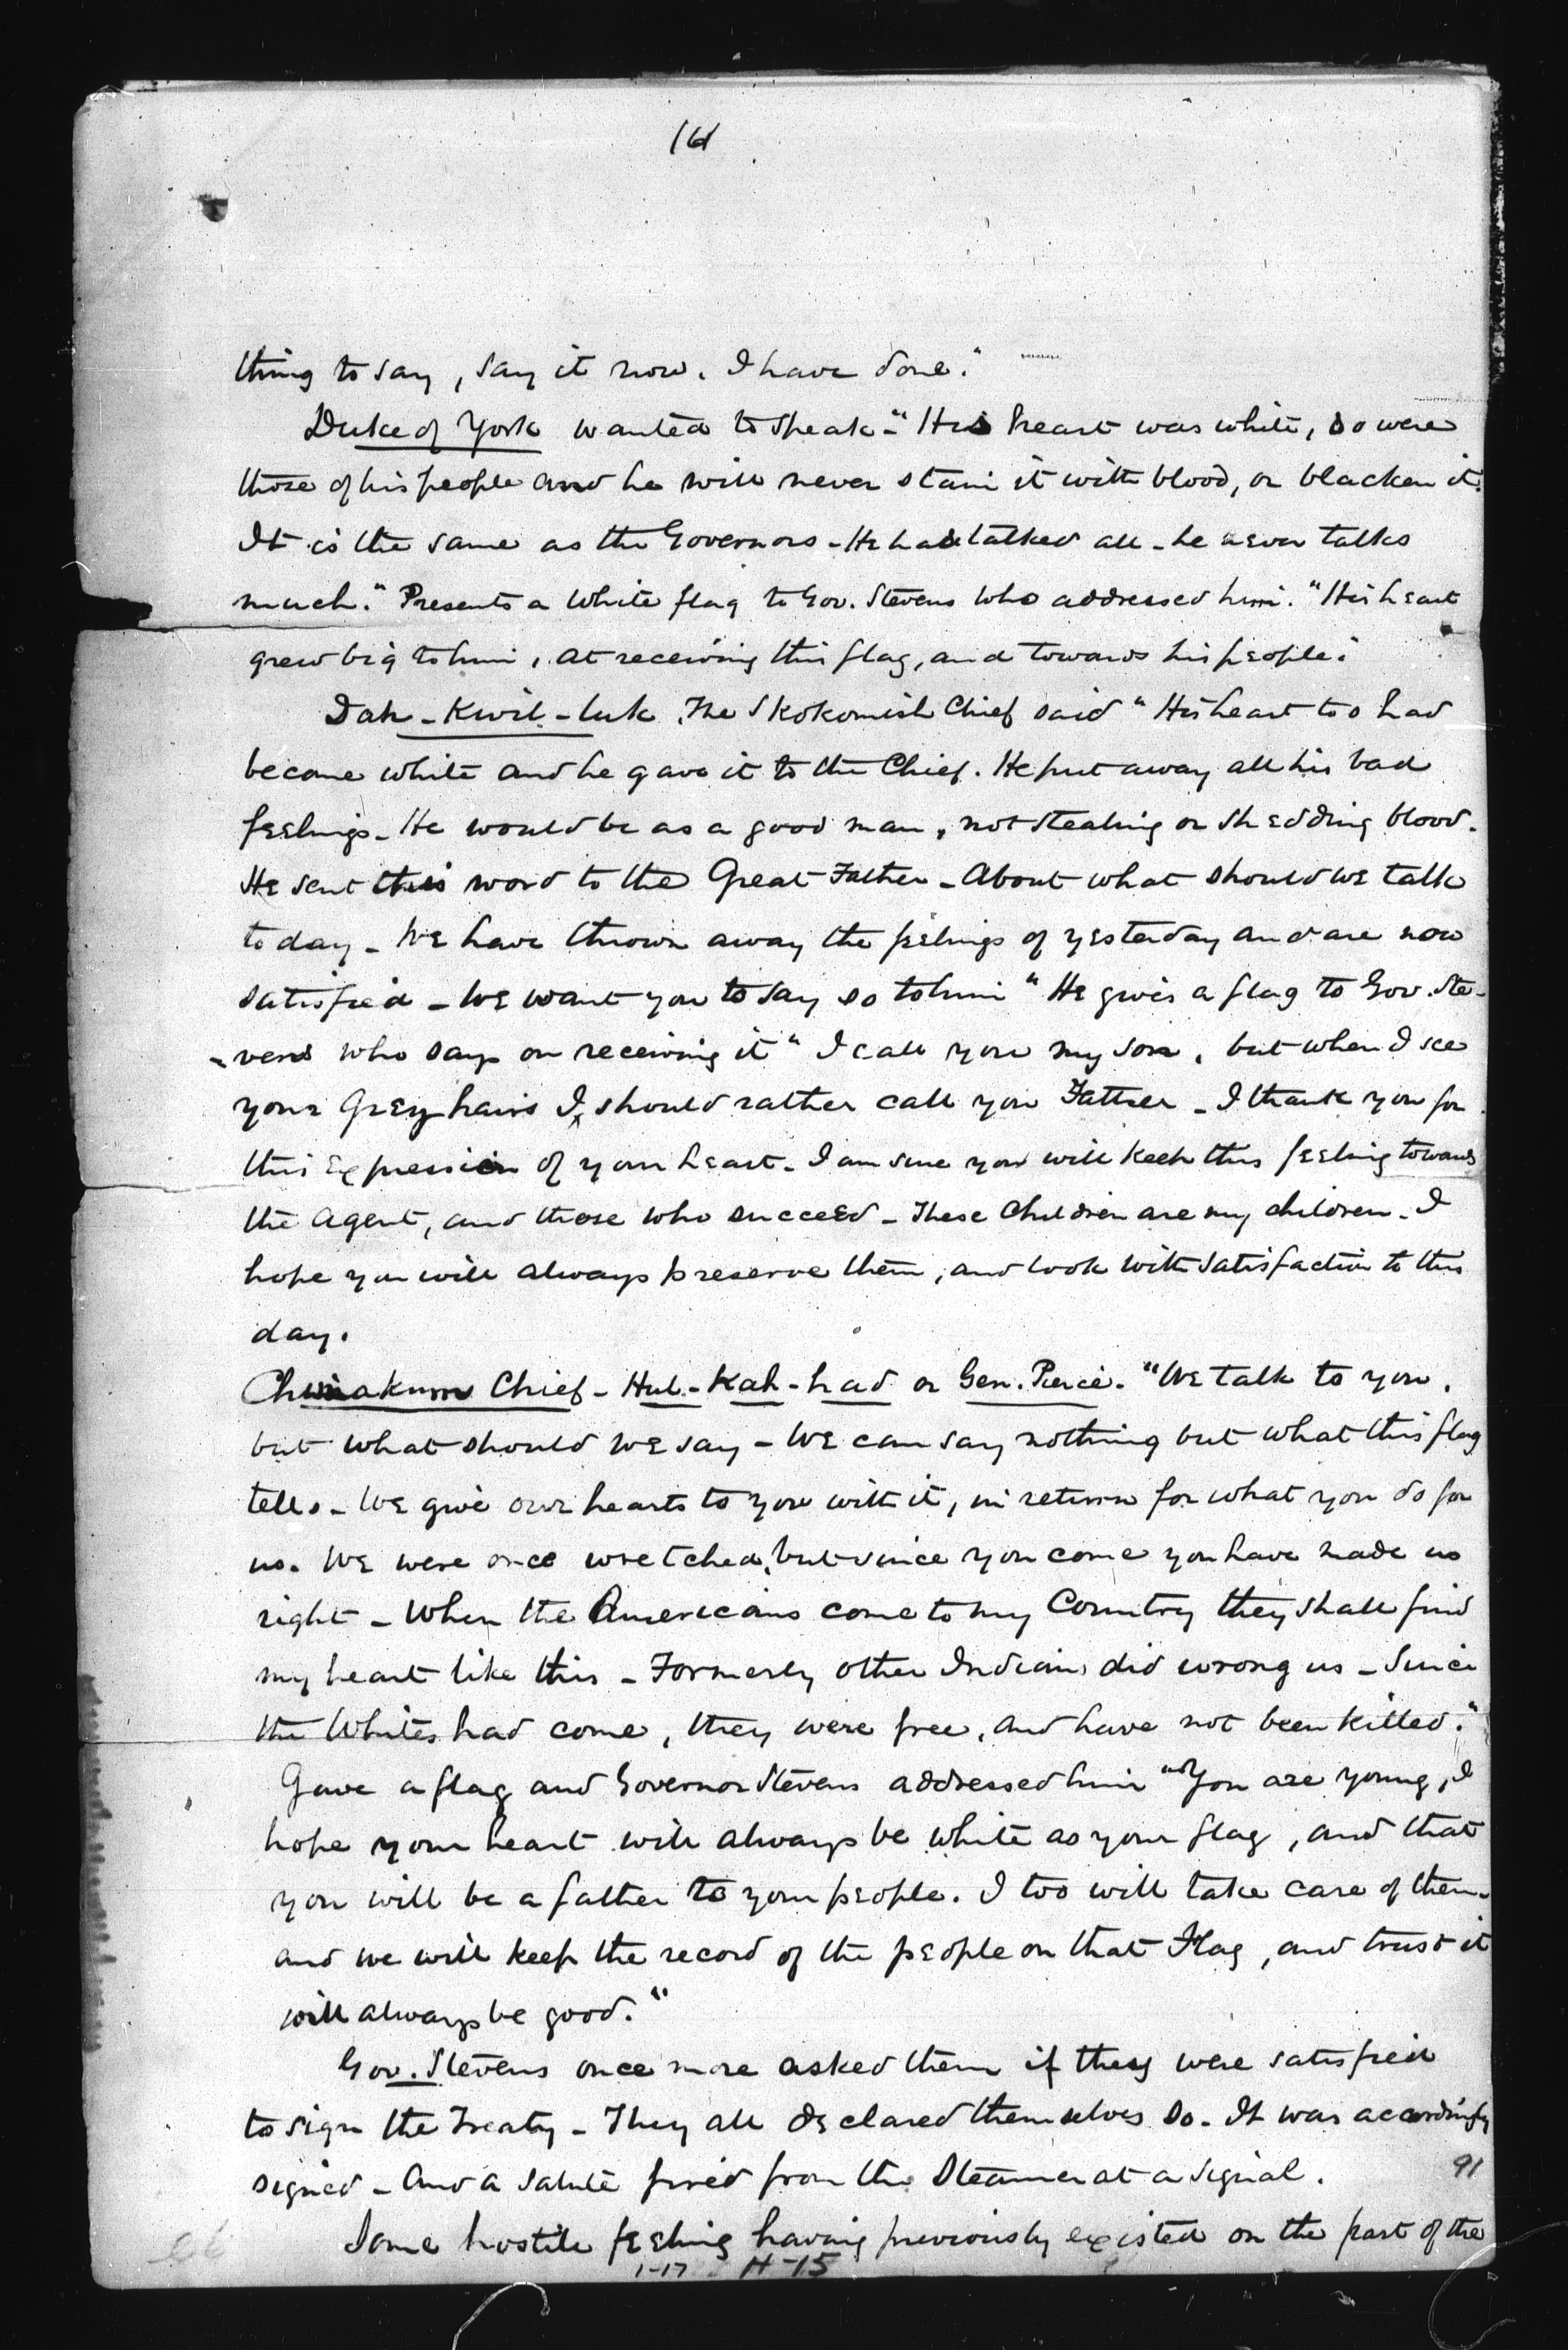 16
thing to say, say it now. I have done."
Duke of York wanted to speak - "His heart was white, so were
those of his people and he will never stain it with blood, or blacken it.
It is the same as the Governors - He had talked all - he never talks
much." Presents a White flag to Gov. Stevens who addressed him. "His heart
grew big to him, at receiving this flag, and towards his people."
Dah - Kwil - luk, The Skokomish Chief said "His heart too had
become white and he gave it to the Chief. He put away all his bad
feelings - He would be as a good man, not stealing or shedding blood.
He sent this word to the Great Father - About what should we talk
to day - We have thrown away the feelings of yesterday and are now
satisfied - We want you to say so to him" He gives a flag to Gov. Ste-
-vens who says on receiving it "I call you my son, but when I see
your Grey hairs I should rather call you Father - I thank you for
this expression of your heart - I am sure you will keep this feeling towards
the Agent, and those who succeed - These Children are my children - I
hope you will always preserve them, and look with satisfaction to this
day.
Chimakum Chief - Hul - Kah - had or Gen. Pierce. "We talk to you,
but what should we say - We can say nothing but what this flag
tells - We give our hearts to you with it, in return for what you do for
us. We were once wretched, but since you come you have made us
right - When the Americans come to my Country they shall find
my heart like this - Formerly other Indians did wrong us - Since
the Whites had come, they were free, and have not been killed."
Gave a flag and Governor Stevens addressed him "You are young, I
hope your heart will always be white as your flag, and that
you will be a father to your people. I too will take care of them -
and we will keep the record of the people on that Flag, and trust it
will always be good."
Gov. Stevens once more asked them if they were satisfied
to sign the Treaty - They all declared themselves so - It was accordingly
signed - And a salute fired from the Steamer at a signal.
91
Some hostile feeling having previously existed on the part of the
1-17 H-15